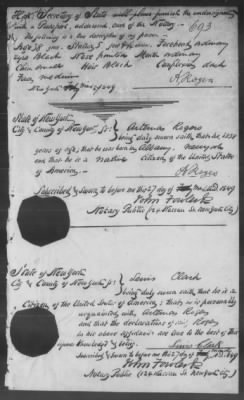 Hon. Secretary of State will please furnish the undersigned
with a Passport, addressed care of the Notary
693
The following is a true description of my person
Age 38 years. Stature 5 feet inches. Forehead ordinary
Eyes Black Nose prominent Mouth ordinary
Chin Hair Black Complexion dark
Face medium
A Rogers
New York 1849
State of New York
City & County of New York ss: Antonas Rogers
being duly sworn saith that he is 38
years of age, that he was born in Albany, New York
and that he is a native Citizen of the United States
of America.
A Rogers
Subscribed & Sworn to before me this day of 1849
John Fowler Jr
Notary Public (124 Nassau St. New York City)
State of New York
City & County of New York ss: Lewis Clark
being duly sworn saith that he is a
Citizen of the United States of America; that he is personally
acquainted with Antonas Rogers
and that the declarations of said Rogers
in his above affidavit are true to the best of this
deponent's knowledge & belief.
Lewis Clark
Subscribed & Sworn to before me this day of 1849
John Fowler Jr
Notary Public (124 Nassau St. New York City)